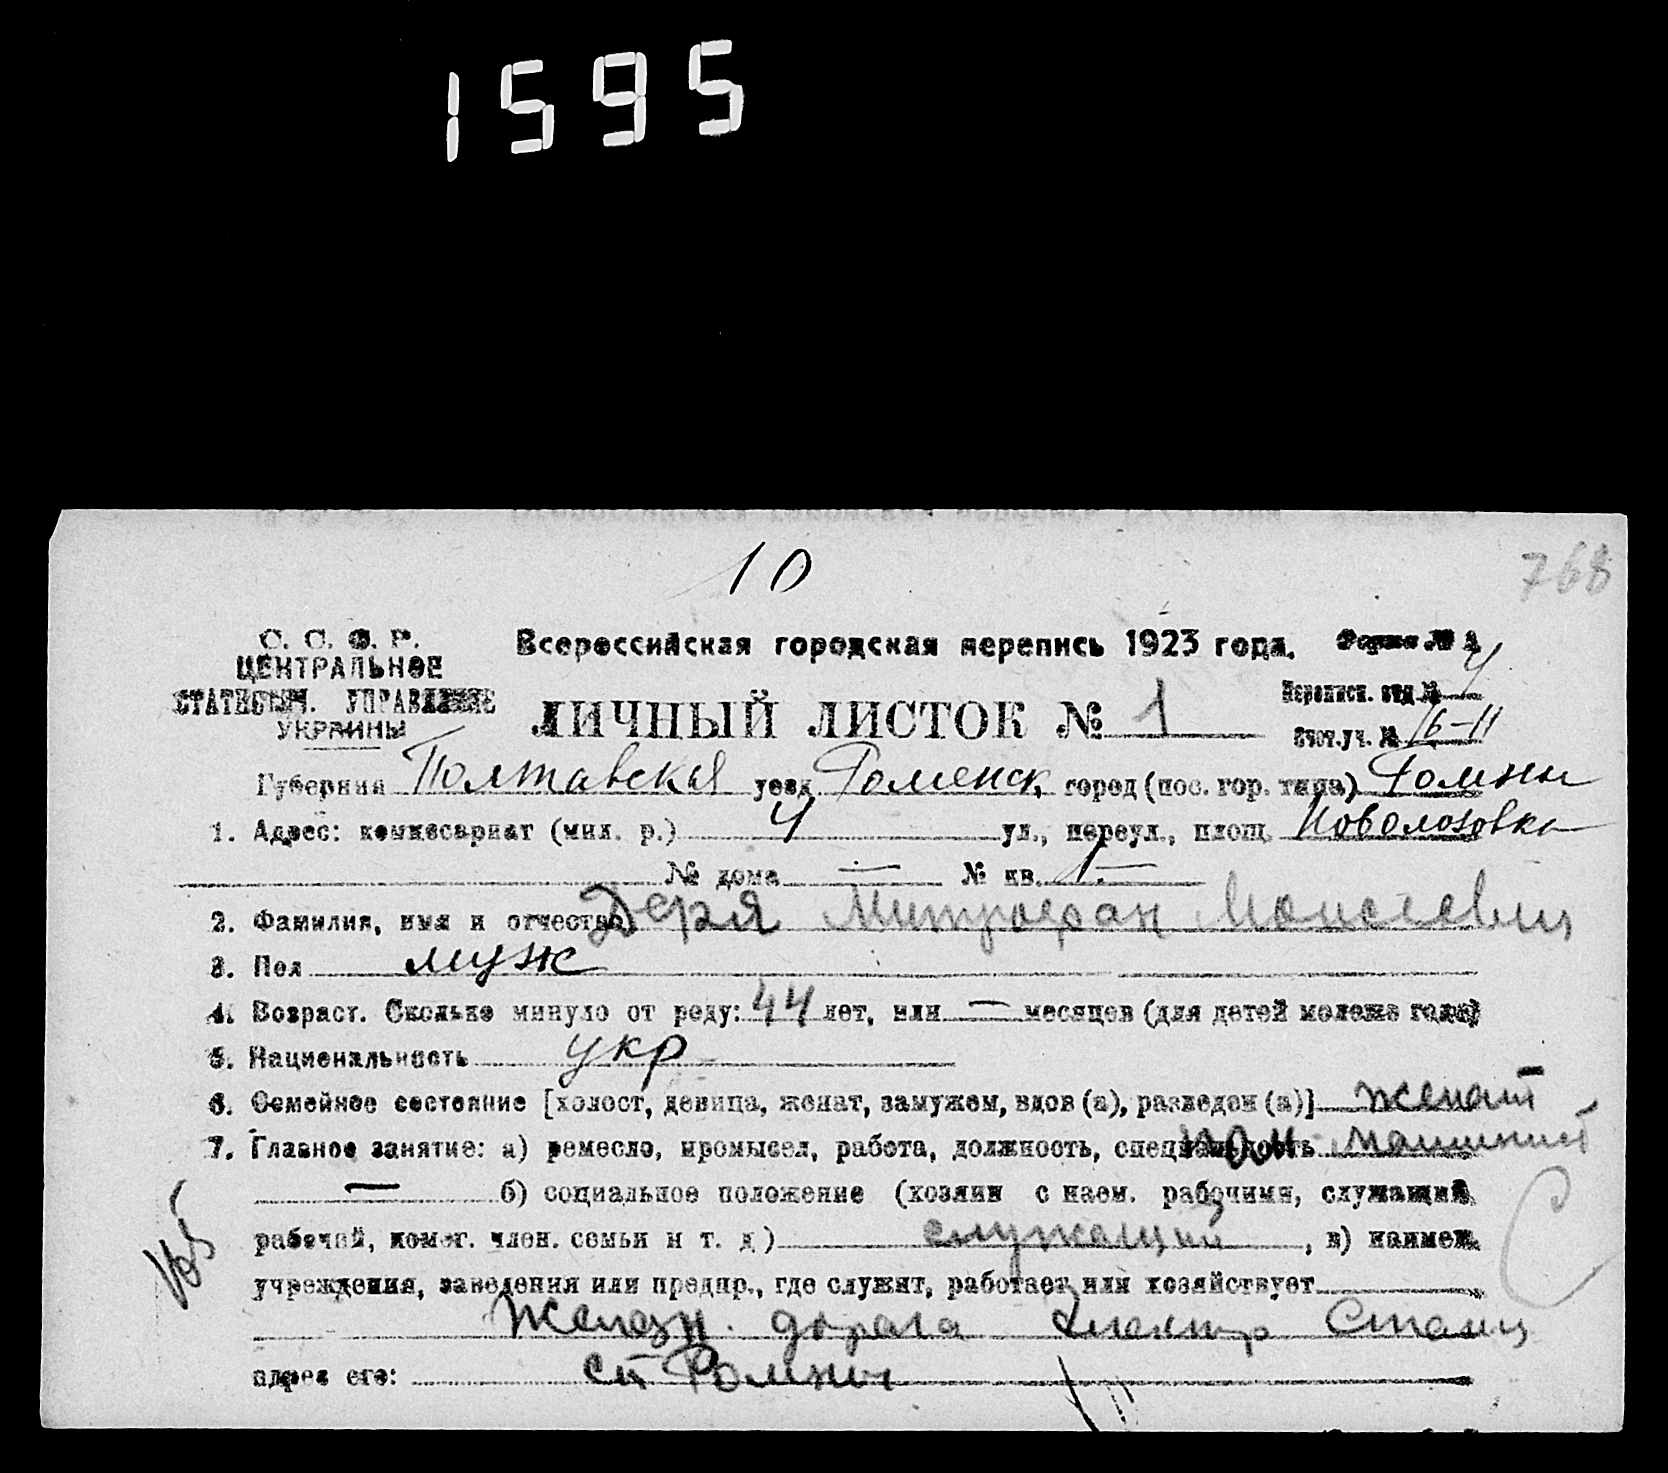 1595
10
768
С. С. С. Р.
ЦЕНТРАЛЬНОЕ
СТАТИСТИЧ. УПРАВЛЕНИЕ
УКРАИНЫ
Всероссийская городская перепись 1923 года.
Форма № 1
ЛИЧНЫЙ ЛИСТОК № 1
Переписн. отд. № 4
Счет. уч. № 16-11
Губерния Полтавская уезд Роменск. город (пос. гор. типа) Ромны
1. Адрес: комиссариат (мил. р.) 4 ул., переул., площ.
№ дома — № кв. —
2. Фамилия, имя и отчество Деря Митрофан Моисеевич
3. Пол муж
4. Возраст. Сколько минуло от роду: 44 лет, или — месяцев (для детей моложе года)
5. Национальность укр
6. Семейное состояние [холост, девица, женат, замужем, вдов (а), разведен (а)] женат
7. Главное занятие: а) ремесло, промысел, работа, должность, специальность пом. машинист
— б) социальное положение (хозяин с наем. рабочими, служащий
рабочий, помог. член. семьи и т. д) служащий, в) наимен.
учреждения, заведения или предпр., где служит, работает или хозяйствует
Железн. дорога Электр Станц
адрес его: ст Ромны